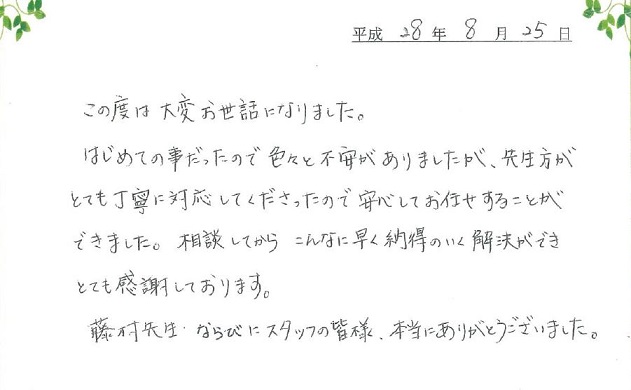 平成 28 年 8 月 25 日
この度は大変お世話になりました。
はじめての事だったので色々と不安がありましたが、先生方が
とても丁寧に対応してくださったので安心してお任せすることが
できました。相談してから こんなに早く納得のいく解決ができ
とても感謝しております。
藤村先生・ならびにスタッフの皆様、本当にありがとうございました。